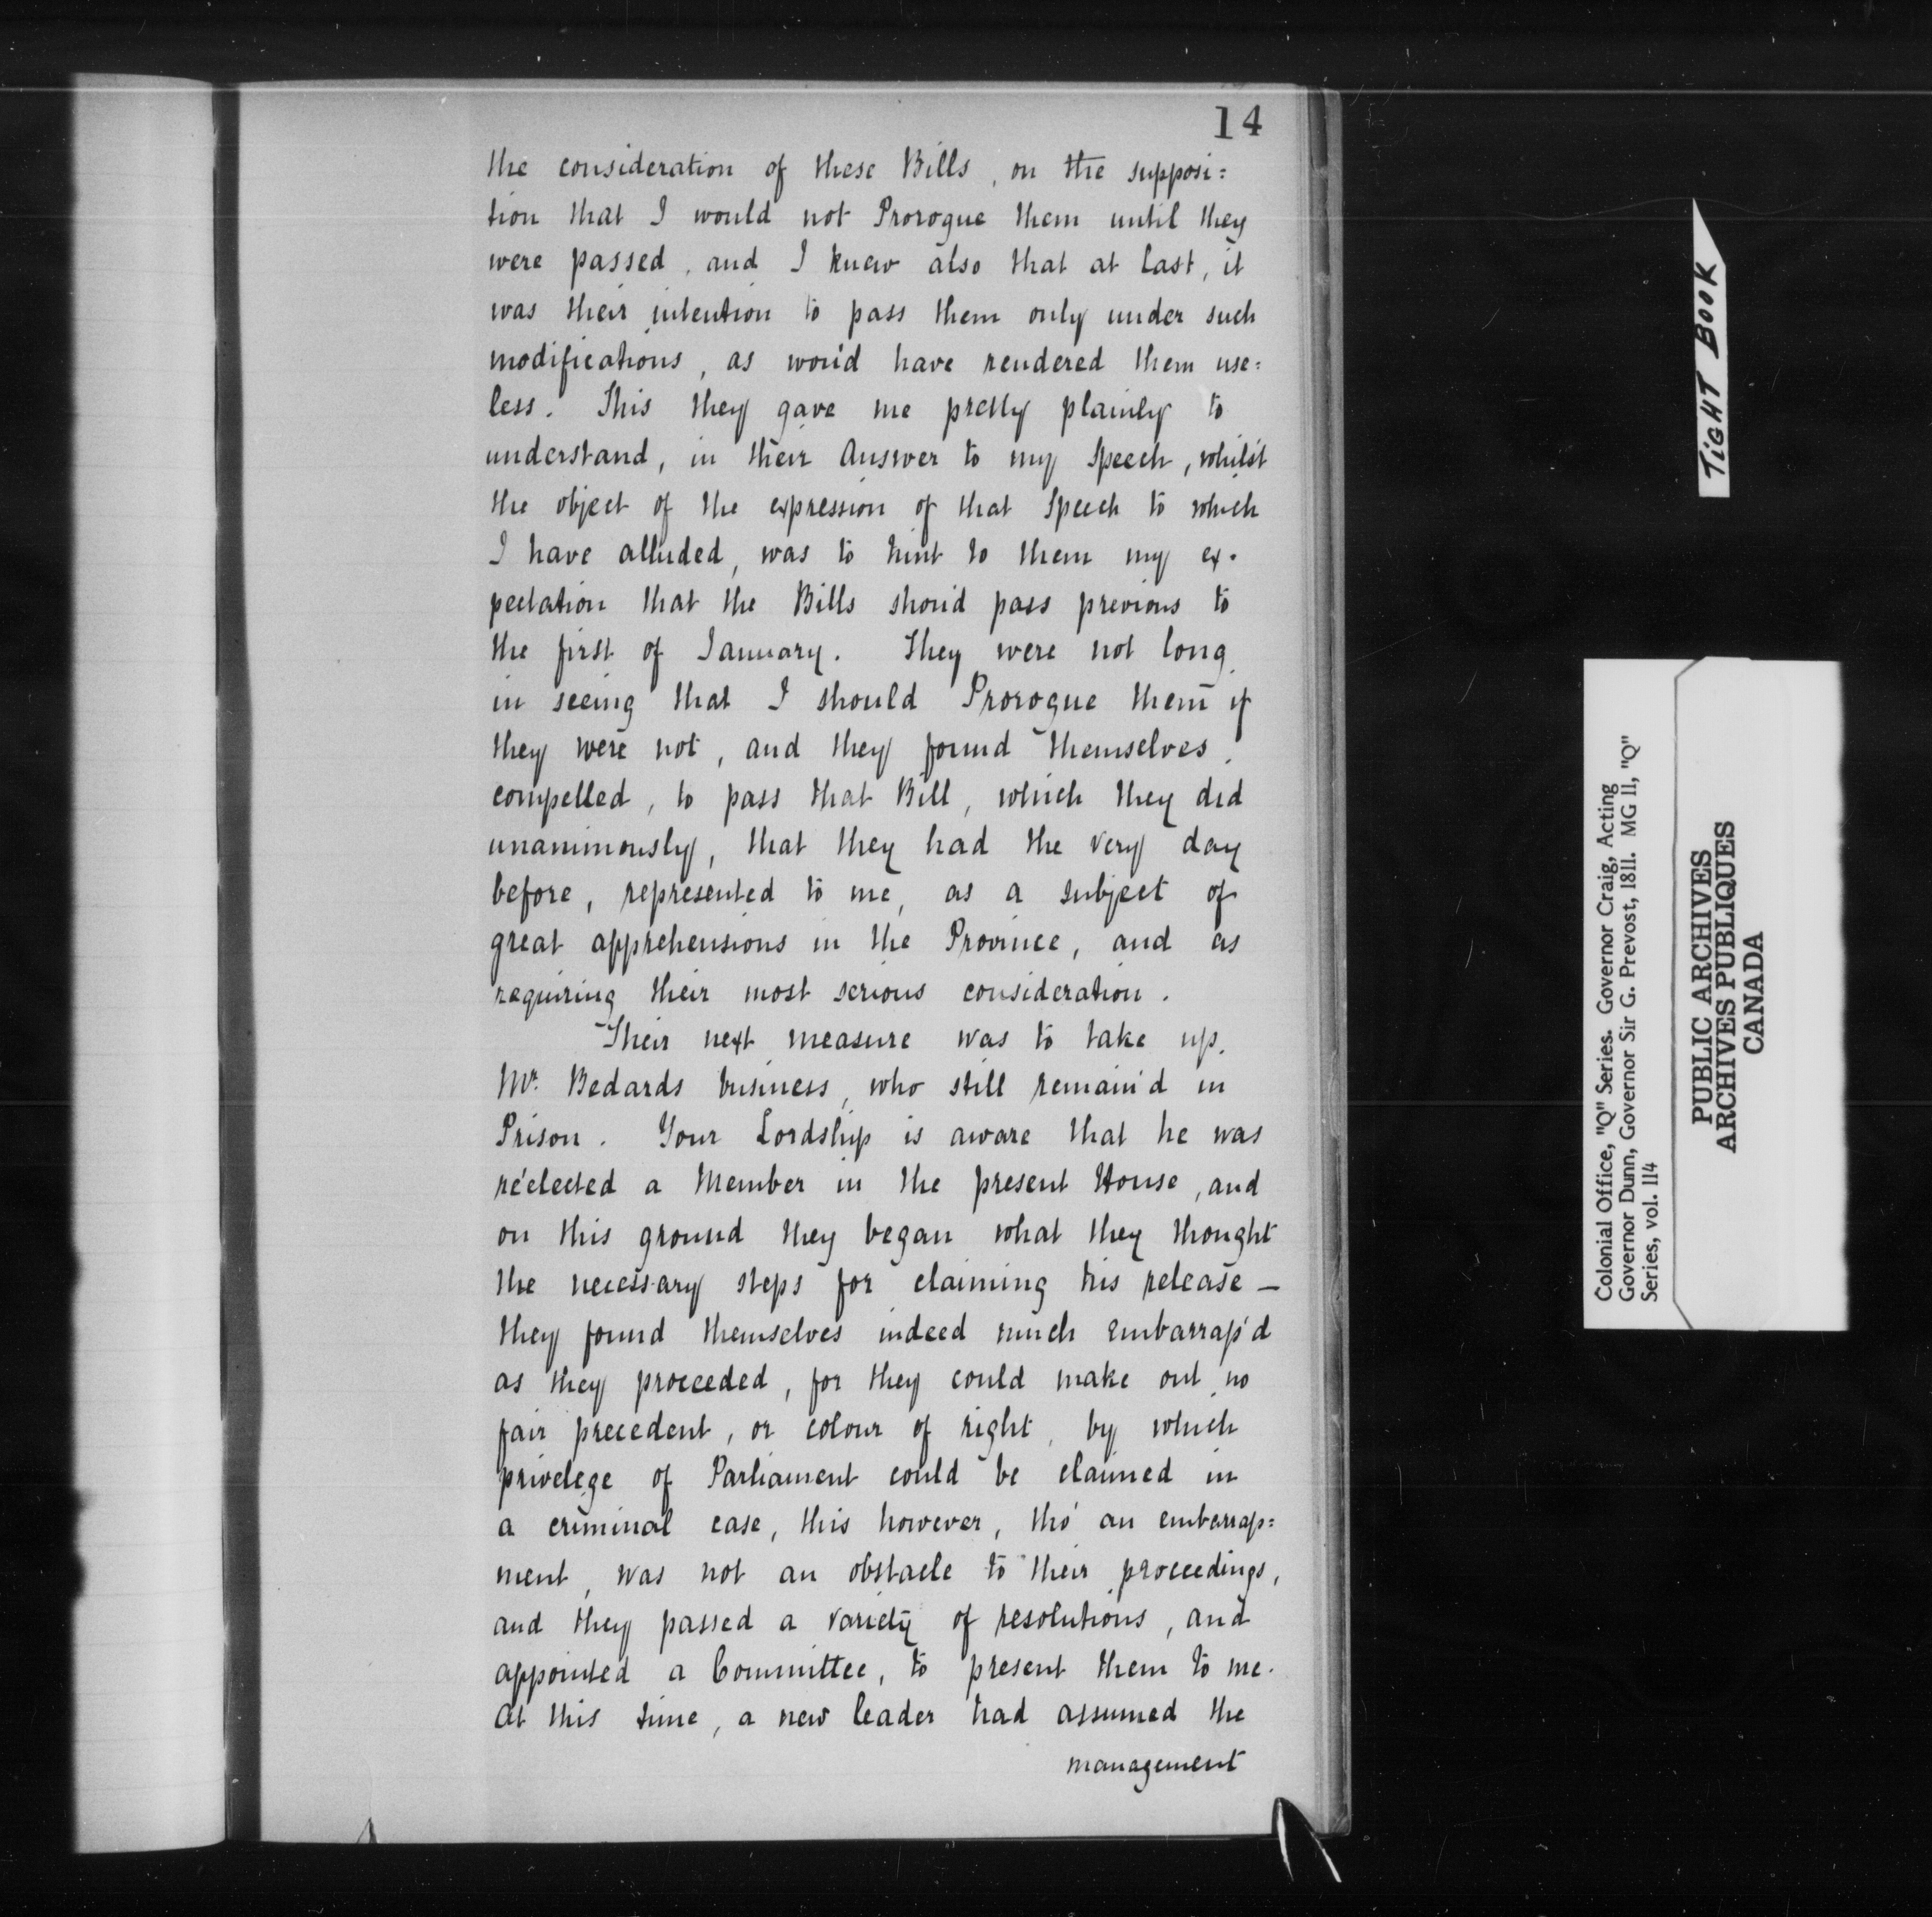 14
the consideration of these Bills, on the supposi=
tion that I would not Prorogue them until they
were passed, and I knew also that at last, it
was their intention to pass them only under such
modifications, as wou'd have rendered them use=
less. This they gave me pretty plainly to
understand, in their Answer to my Speech, whilst
the object of the expression of that Speech to which
I have alluded, was to hint to them my ex-
pectation that the Bills shou'd pass previous to
the first of January. They were not long
in seeing that I should Prorogue them if
they were not, and they found themselves
compelled, to pass that Bill, which they did
unanimously, that they had the very day
before, represented to me, as a subject of
great apprehensions in the Province, and as
requiring their most serious consideration.
Their next measure was to take up
Mr. Bedards business, who still remain'd in
Prison. Your Lordship is aware that he was
re'elected a Member in the present House, and
on this ground they began what they thought
the necessary steps for claiming his release —
they found themselves indeed much embarraſs'd
as they proceeded, for they could make out no
fair precedent, or colour of right, by which
privelege of Parliament could be claimed in
a criminal case, this however, tho' an embarraſs=
ment, was not an obstacle to their proceedings,
and they passed a variety of resolutions, and
appointed a Committee, to present them to me.
At this time, a new leader had assumed the
management
TIGHT BOOK
Colonial Office, "Q" Series. Governor Craig, Acting
Governor Dunn, Governor Sir G. Prevost, 1811. MG 11, "Q"
Series, vol. 114
PUBLIC ARCHIVES
ARCHIVES PUBLIQUES
CANADA